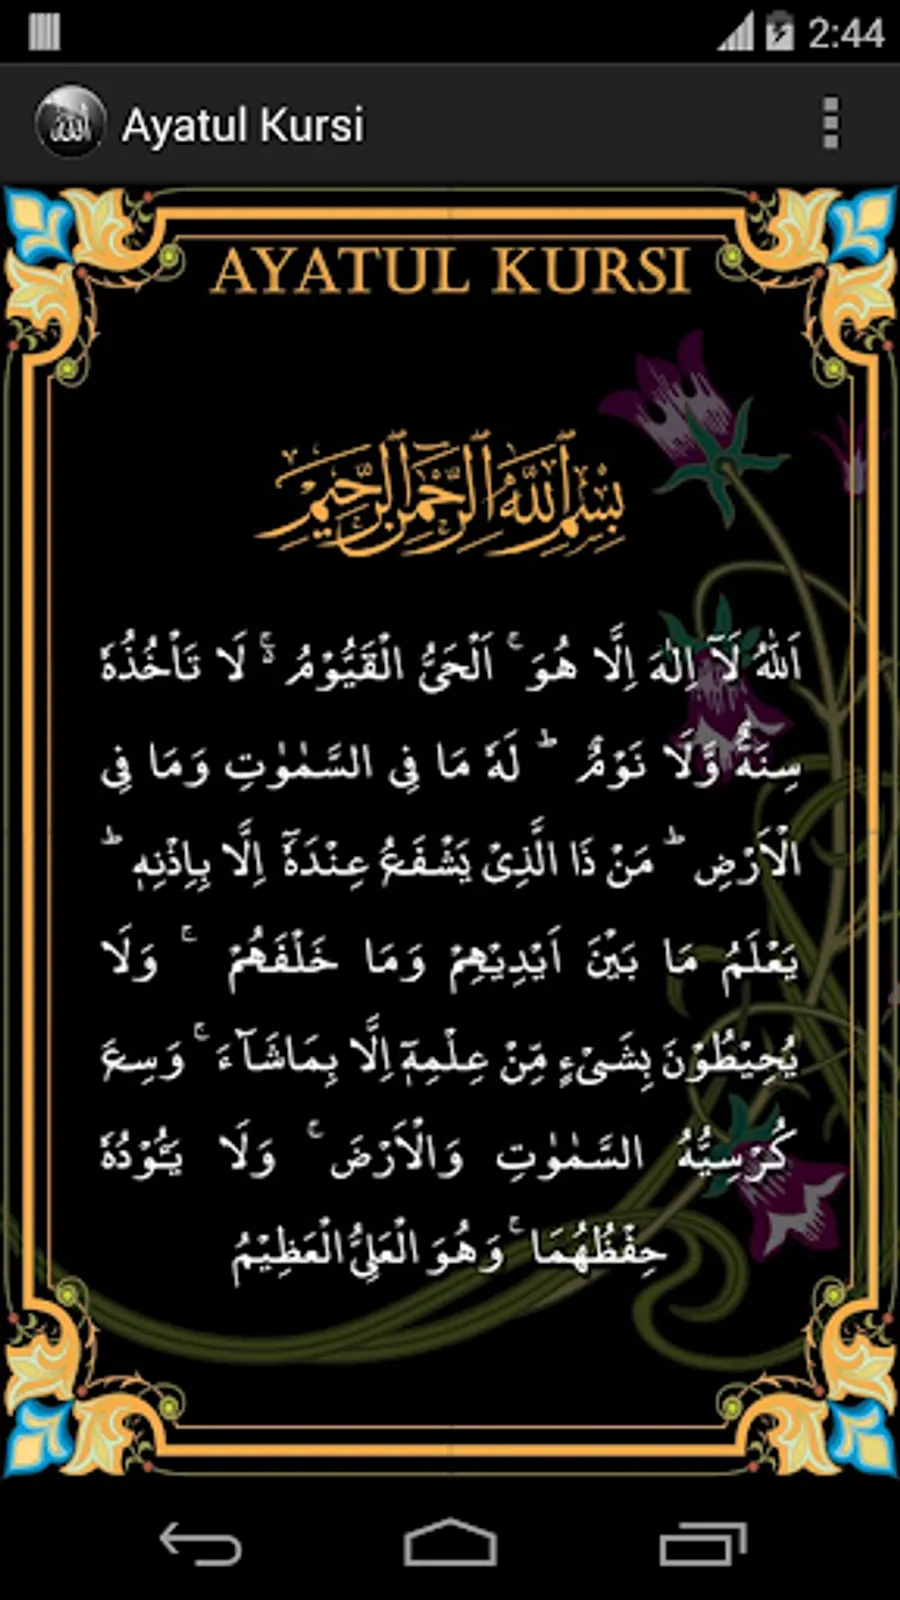 2:44
Ayatul Kursi
AYATUL KURSI
بِسْمِ اللَّهِ الرَّحْمَٰنِ الرَّحِيمِ
اَللّٰهُ لَاۤ اِلٰهَ اِلَّا هُوَ ۚ اَلْحَیُّ الْقَیُّوْمُ ۬ۚ لَا تَاْخُذُهٗ
سِنَةٌ وَّلَا نَوْمٌ ؕ لَهٗ مَا فِی السَّمٰوٰتِ وَمَا فِی
الْاَرْضِ ؕ مَنْ ذَا الَّذِیْ یَشْفَعُ عِنْدَهٗۤ اِلَّا بِاِذْنِهٖ ؕ
یَعْلَمُ مَا بَیْنَ اَیْدِیْهِمْ وَمَا خَلْفَهُمْ ۚ وَلَا
یُحِیْطُوْنَ بِشَیْءٍ مِّنْ عِلْمِهٖۤ اِلَّا بِمَاشَآءَ ۚ وَسِعَ
كُرْسِیُّهُ السَّمٰوٰتِ وَالْاَرْضَ ۚ وَلَا یَـُٔوْدُهٗ
حِفْظُهُمَا ۚ وَهُوَ الْعَلِیُّ الْعَظِیْمُ